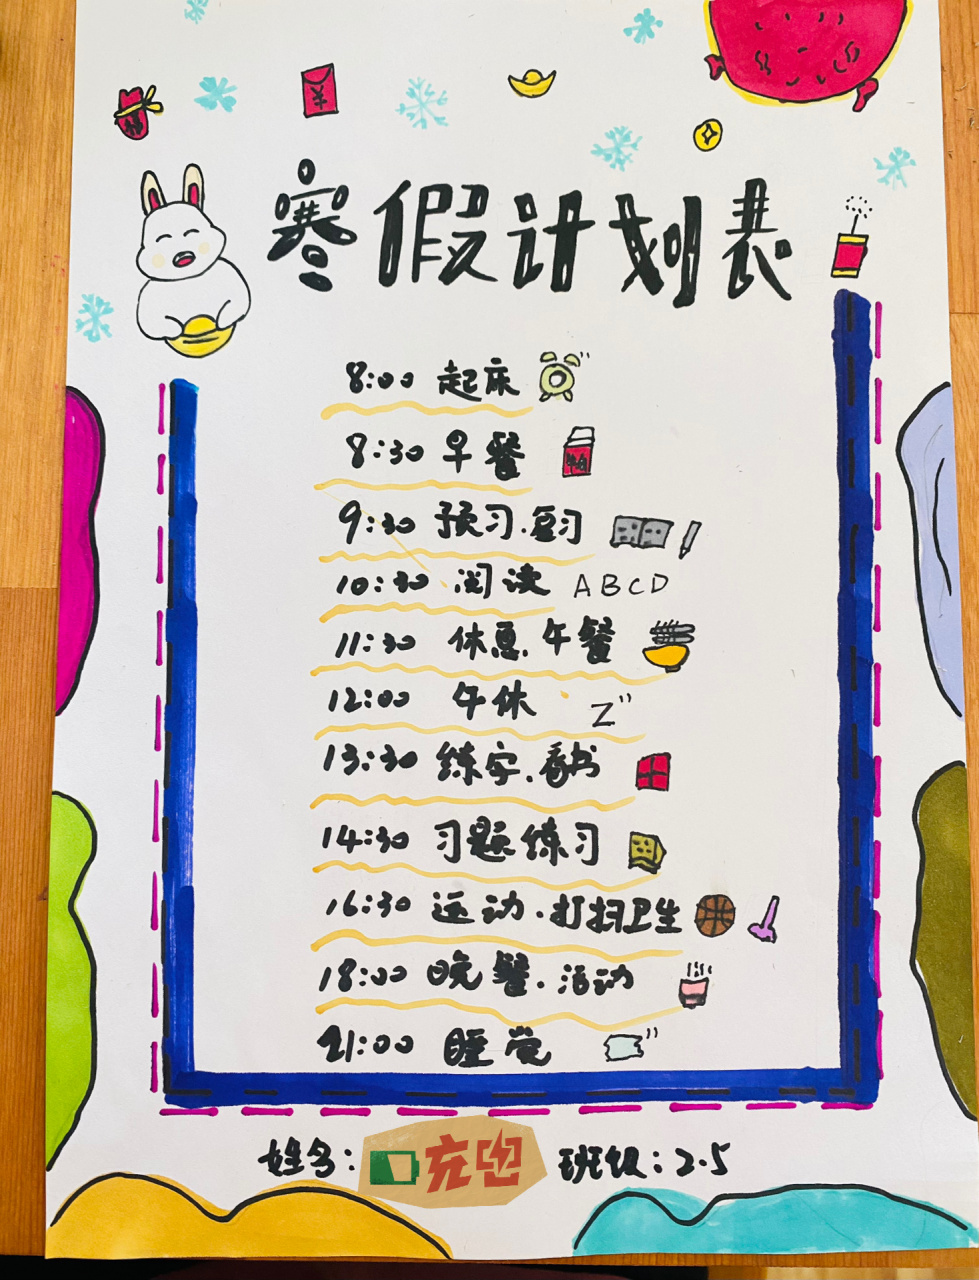 ¥
寒假计划表
8:00 起床
8:30 早餐
9:30 预习.复习
10:30 阅读 ABCD
11:30 休息.午餐
12:00 午休 Z"
13:30 练字.看书
14:30 习题练习
16:30 运动.打扫卫生
18:00 晚餐.活动
21:00 睡觉
姓名: 充电 班级: 2.5